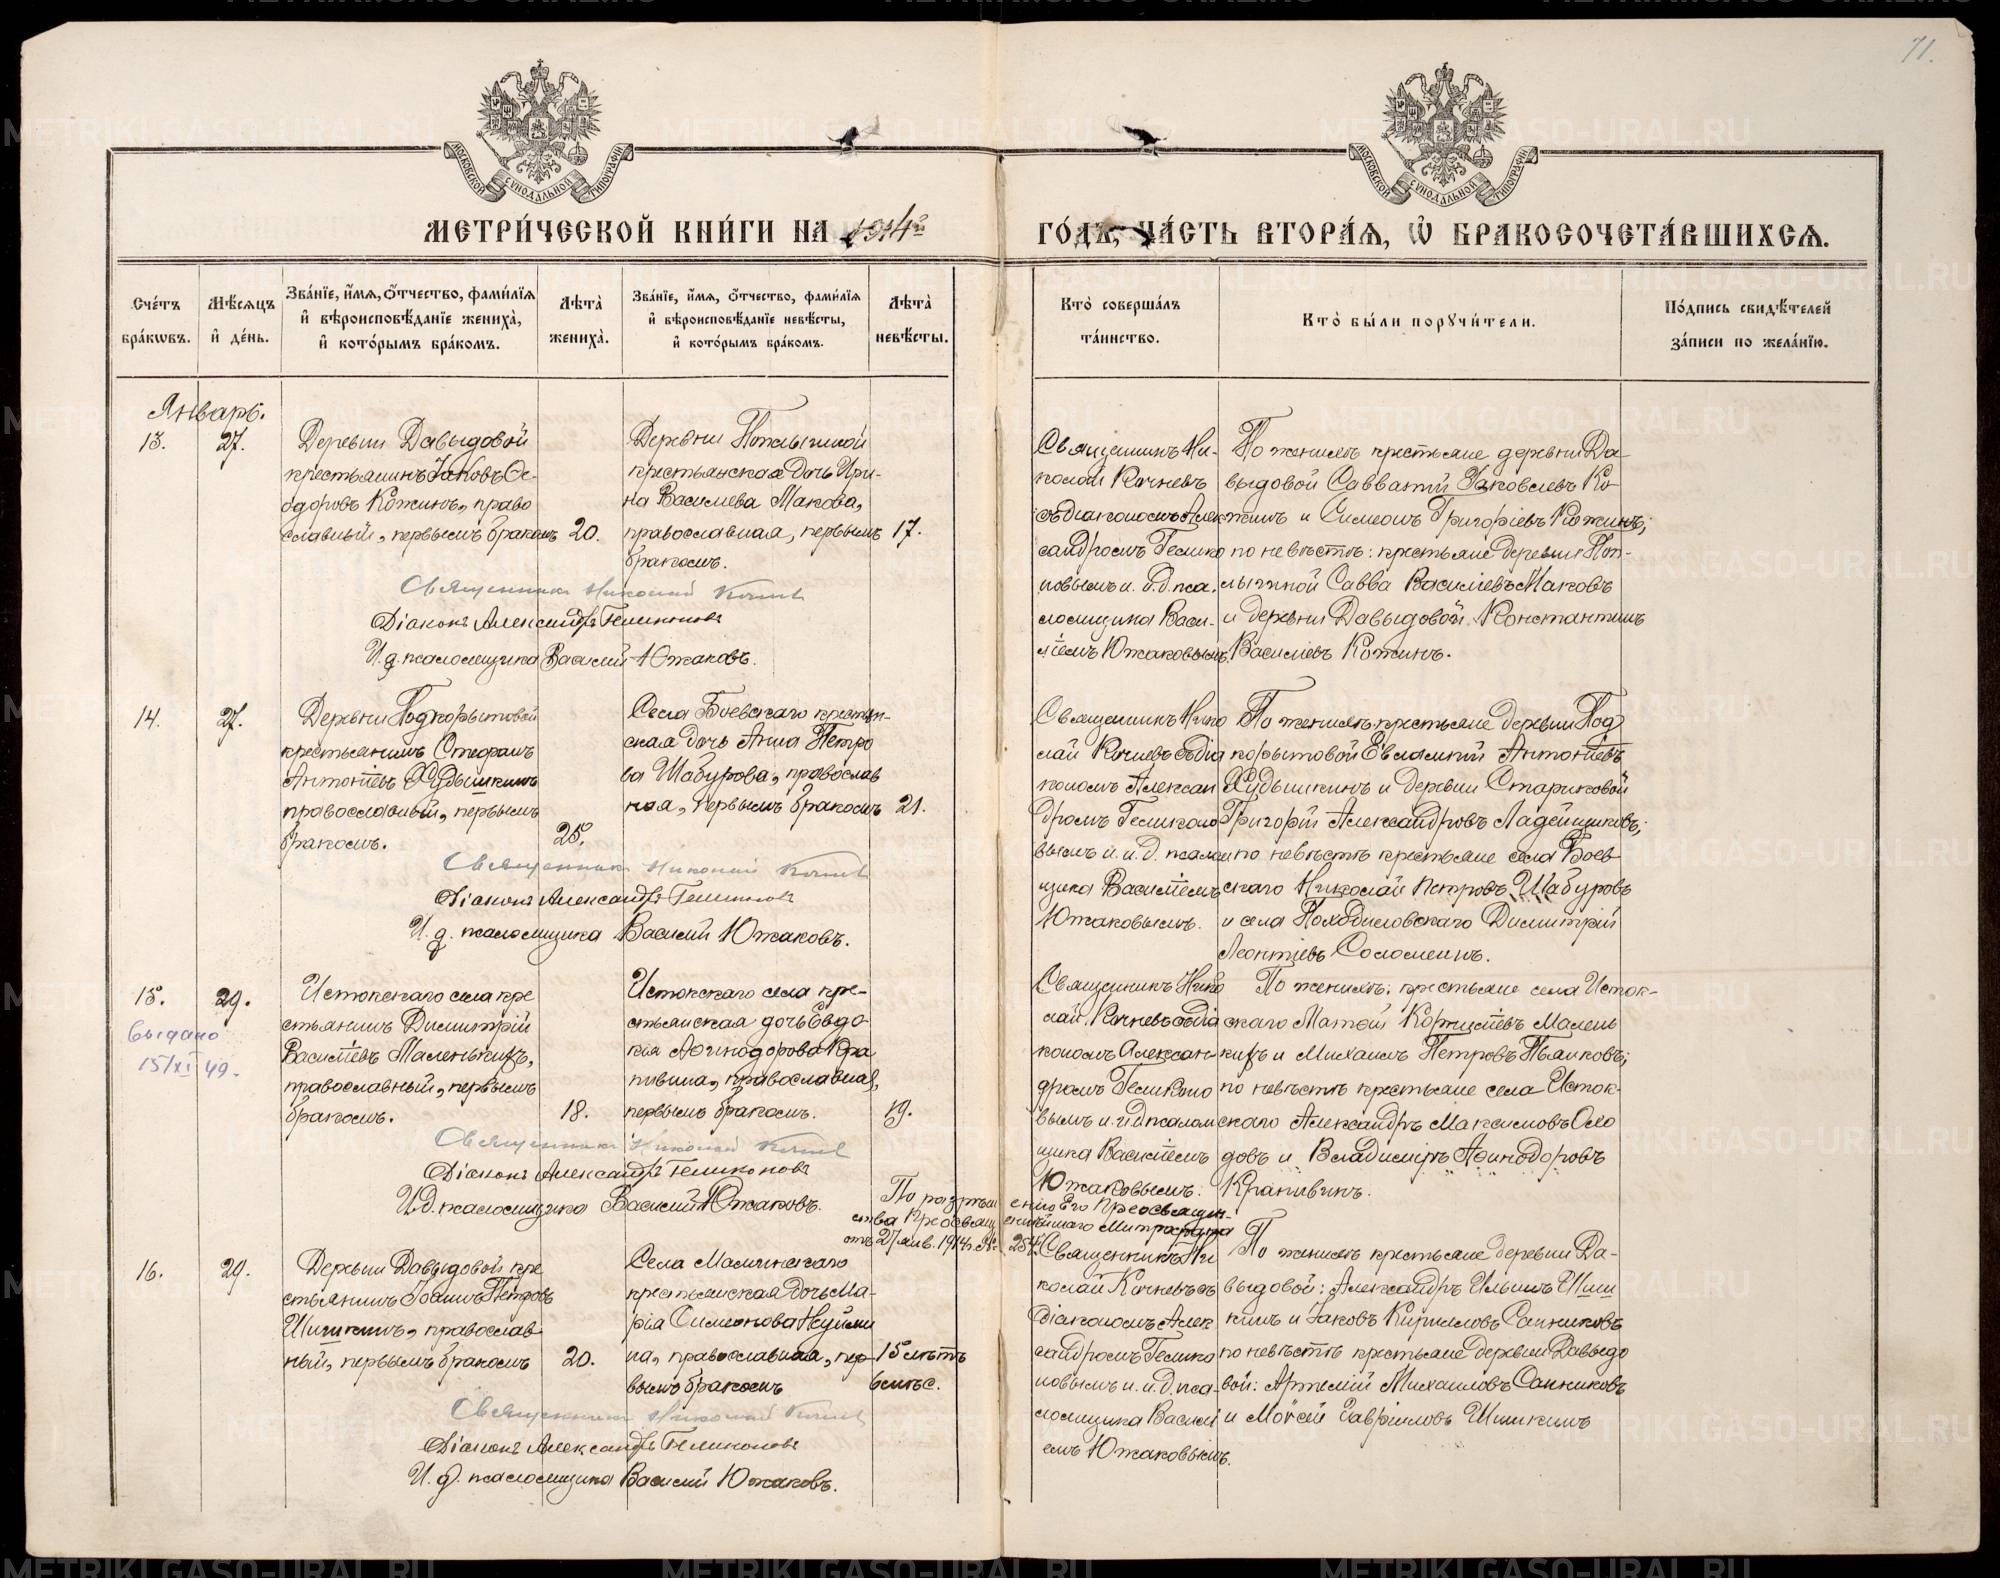 71.
МОСКОВСКОЙ СѴНОДАЛЬНОЙ ТИПОГРАФІИ
МОСКОВСКОЙ СѴНОДАЛЬНОЙ ТИПОГРАФІИ
МЕТРИ́ЧЕСКОЙ КНИ́ГИ НА 1914й
ГО́ДЪ, ЧА́СТЬ ВТОРА́Я, Ѡ҆ БРАКОСОЧЕТА́ВШИХСЯ.
Сче́тъ бра́кѡвъ.
Мѣ́сяцъ и҆ де́нь.
Зва́нїе, и҆́мя, ѻ҆́тчество, фами́лїя и҆ вѣроисповѣ́данїе жениха̀, и҆ кото́рымъ бра́комъ.
Лѣта̀ жениха̀.
Зва́нїе, и҆́мя, ѻ҆́тчество, фами́лїя и҆ вѣроисповѣ́данїе невѣ́сты, и҆ кото́рымъ бра́комъ.
Лѣта̀ невѣ́сты.
Кто̀ соверша́лъ та́инство.
Кто̀ бы́ли порꙋчи́тели.
По́дпись свидѣ́телей за́писи по жела́нїю.
Январь.
13.
27.
Деревни Давыдовой
крестьянинъ Іаковъ Ѳе-
одоровъ Кожинъ, право
славный, первымъ бракомъ
20.
Деревни
крестьянская дочь Ири-
на Василиева Макова,
православная, первымъ
бракомъ.
17.
Священникъ Ни-
колай Кочневъ
съ діакономъ Алек
сандромъ Гелико
новымъ и. д. пса-
ломщика Васи-
ліемъ Южаковымъ.
По женихѣ крестьяне деревни Да-
выдовой Савватій Іаковлевъ Ко-
жинъ и Симеонъ Григоріевъ Кожинъ;
по невѣстѣ: крестьяне деревни
Савва Василіевъ Маковъ
и деревни Давыдовой Константинъ
Василіевъ Кожинъ.
Священникъ Николай Кочневъ
Діаконъ Александръ Геликоновъ
И. д. псаломщика Василій Южаковъ.
14.
27.
Деревни Подкорытовой
крестьянинъ Стефанъ
Антоніевъ Худышкинъ
православный, первымъ
бракомъ.
25.
Села Боевскаго крестьян-
ская дочь Анна Петро
ва Шабурова, православ
ная, первымъ бракомъ
21.
Священникъ Нико
лай Кочневъ съ діа
кономъ Алексан
дромъ Геликоно
вымъ и. и. д. псалом
щика Василіемъ
Южаковымъ.
По женихѣ: крестьяне деревни Под
корытовой Евлампій Антоніевъ
Худышкинъ и деревни Стариковой
Григорій Александровъ Ладейщиковъ;
по невѣстѣ крестьяне села Боев-
скаго Николай Петровъ Шабуровъ
и села Димитрій
Леонтіевъ Соломеинъ.
Священникъ Николай Кочневъ
Діаконъ Александръ Геликоновъ
И. д. псаломщика Василій Южаковъ.
15.
29.
выдано
15/XI 49.
Истокскаго села кре
стьянинъ Димитрій
Василіевъ Маленькихъ,
православный, первымъ
бракомъ.
18.
Истокскаго села кре-
стьянская дочь Евдо-
кія Аѳинодорова Кра
пивина, православная,
первымъ бракомъ.
19.
Священникъ Нико
лай Кочневъ съ діа
кономъ Алексан-
дромъ Геликоно
вымъ и. и. д. псалом
щика Василіемъ
Южаковымъ.
По женихѣ: крестьяне села Исток-
скаго Матѳій Маленъ
кихъ и Михаилъ Петровъ Пьянковъ;
по невѣстѣ крестьяне села Исток-
скаго Александръ Максимовъ Соло
довъ и Владиміръ Аѳинодоровъ
Крапивинъ.
Священникъ Николай Кочневъ
Діаконъ Александръ Геликоновъ
И. д. псаломщика Василій Южаковъ.
По разрѣшенію Его Преосвящен-
ства Преосвященнѣйшаго Митрофана
отъ 27 янв. 1914г. №
16.
29.
Деревни Давыдовой кре
стьянинъ Іоаннъ Петровъ
Шишкинъ, православ
ный, первымъ бракомъ
20.
Села Маминскаго
крестьянская дочь Ма-
рія Симеонова Неуйми
на, православная, пер-
вымъ бракомъ
15 лѣтъ
6 мѣс.
Священникъ Ни
колай Кочневъ съ
діакономъ Алек
сандромъ Гелико
новымъ и. и. д. пса-
ломщика Василі
емъ Южаковымъ.
По женихѣ крестьяне деревни Да-
выдовой: Александръ Ильинъ Шиш
кинъ и Іаковъ Кирилловъ Санниковъ
по невѣстѣ крестьяне деревни Давыдо
вой: Артемій Михаиловъ Санниковъ
и Моисей Гавріиловъ Шишкинъ
Священникъ Николай Кочневъ
Діаконъ Александръ Геликоновъ
И. д. псаломщика Василій Южаковъ.
METRIKI.GASO-URAL.RU